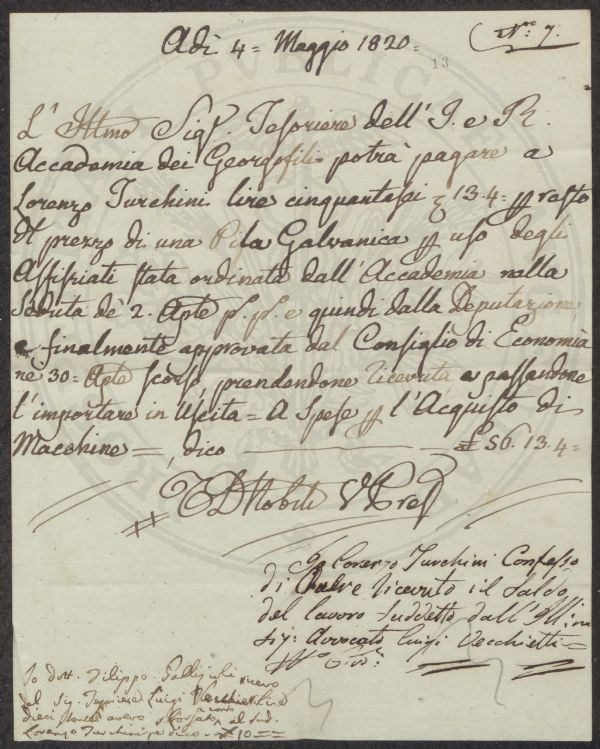 Adì 4= Maggio 1820=
N.º 7.
13
L' Illmo Sigr. Tesoriere dell' I. e R.
Accademia dei Georgofili potrà pagare a
Lorenzo Turchini lire cinquantasei 13.4= p resto
di prezzo di una Pila Galvanica p uso degli
Asfisiati stata ordinata dall' Accademia nella
Seduta de' 2. Aple p. p. e quindi dalla Deputazione,
e finalmente approvata dal Consiglio di Economia
ne' 30= Aple scorso, prendendone ricevuta e passandone
l'importare in Uscita= A Spese p l'Acquisto di
Macchine=, dico £ 56. 13. 4=
Nobili V. Pres.
Io Lorenzo Turchini Confesso
di avere ricevuto il saldo
del lavoro suddetto dall' Illmo
sig: Avvocato Luigi Vecchietti=
Io dott. Filippo Gallizioli ricevo
dal Sig. Tesoriere Luigi Vecchietti lire
dieci a conto al sud.
Lorenzo Turchini dico= £ 10=